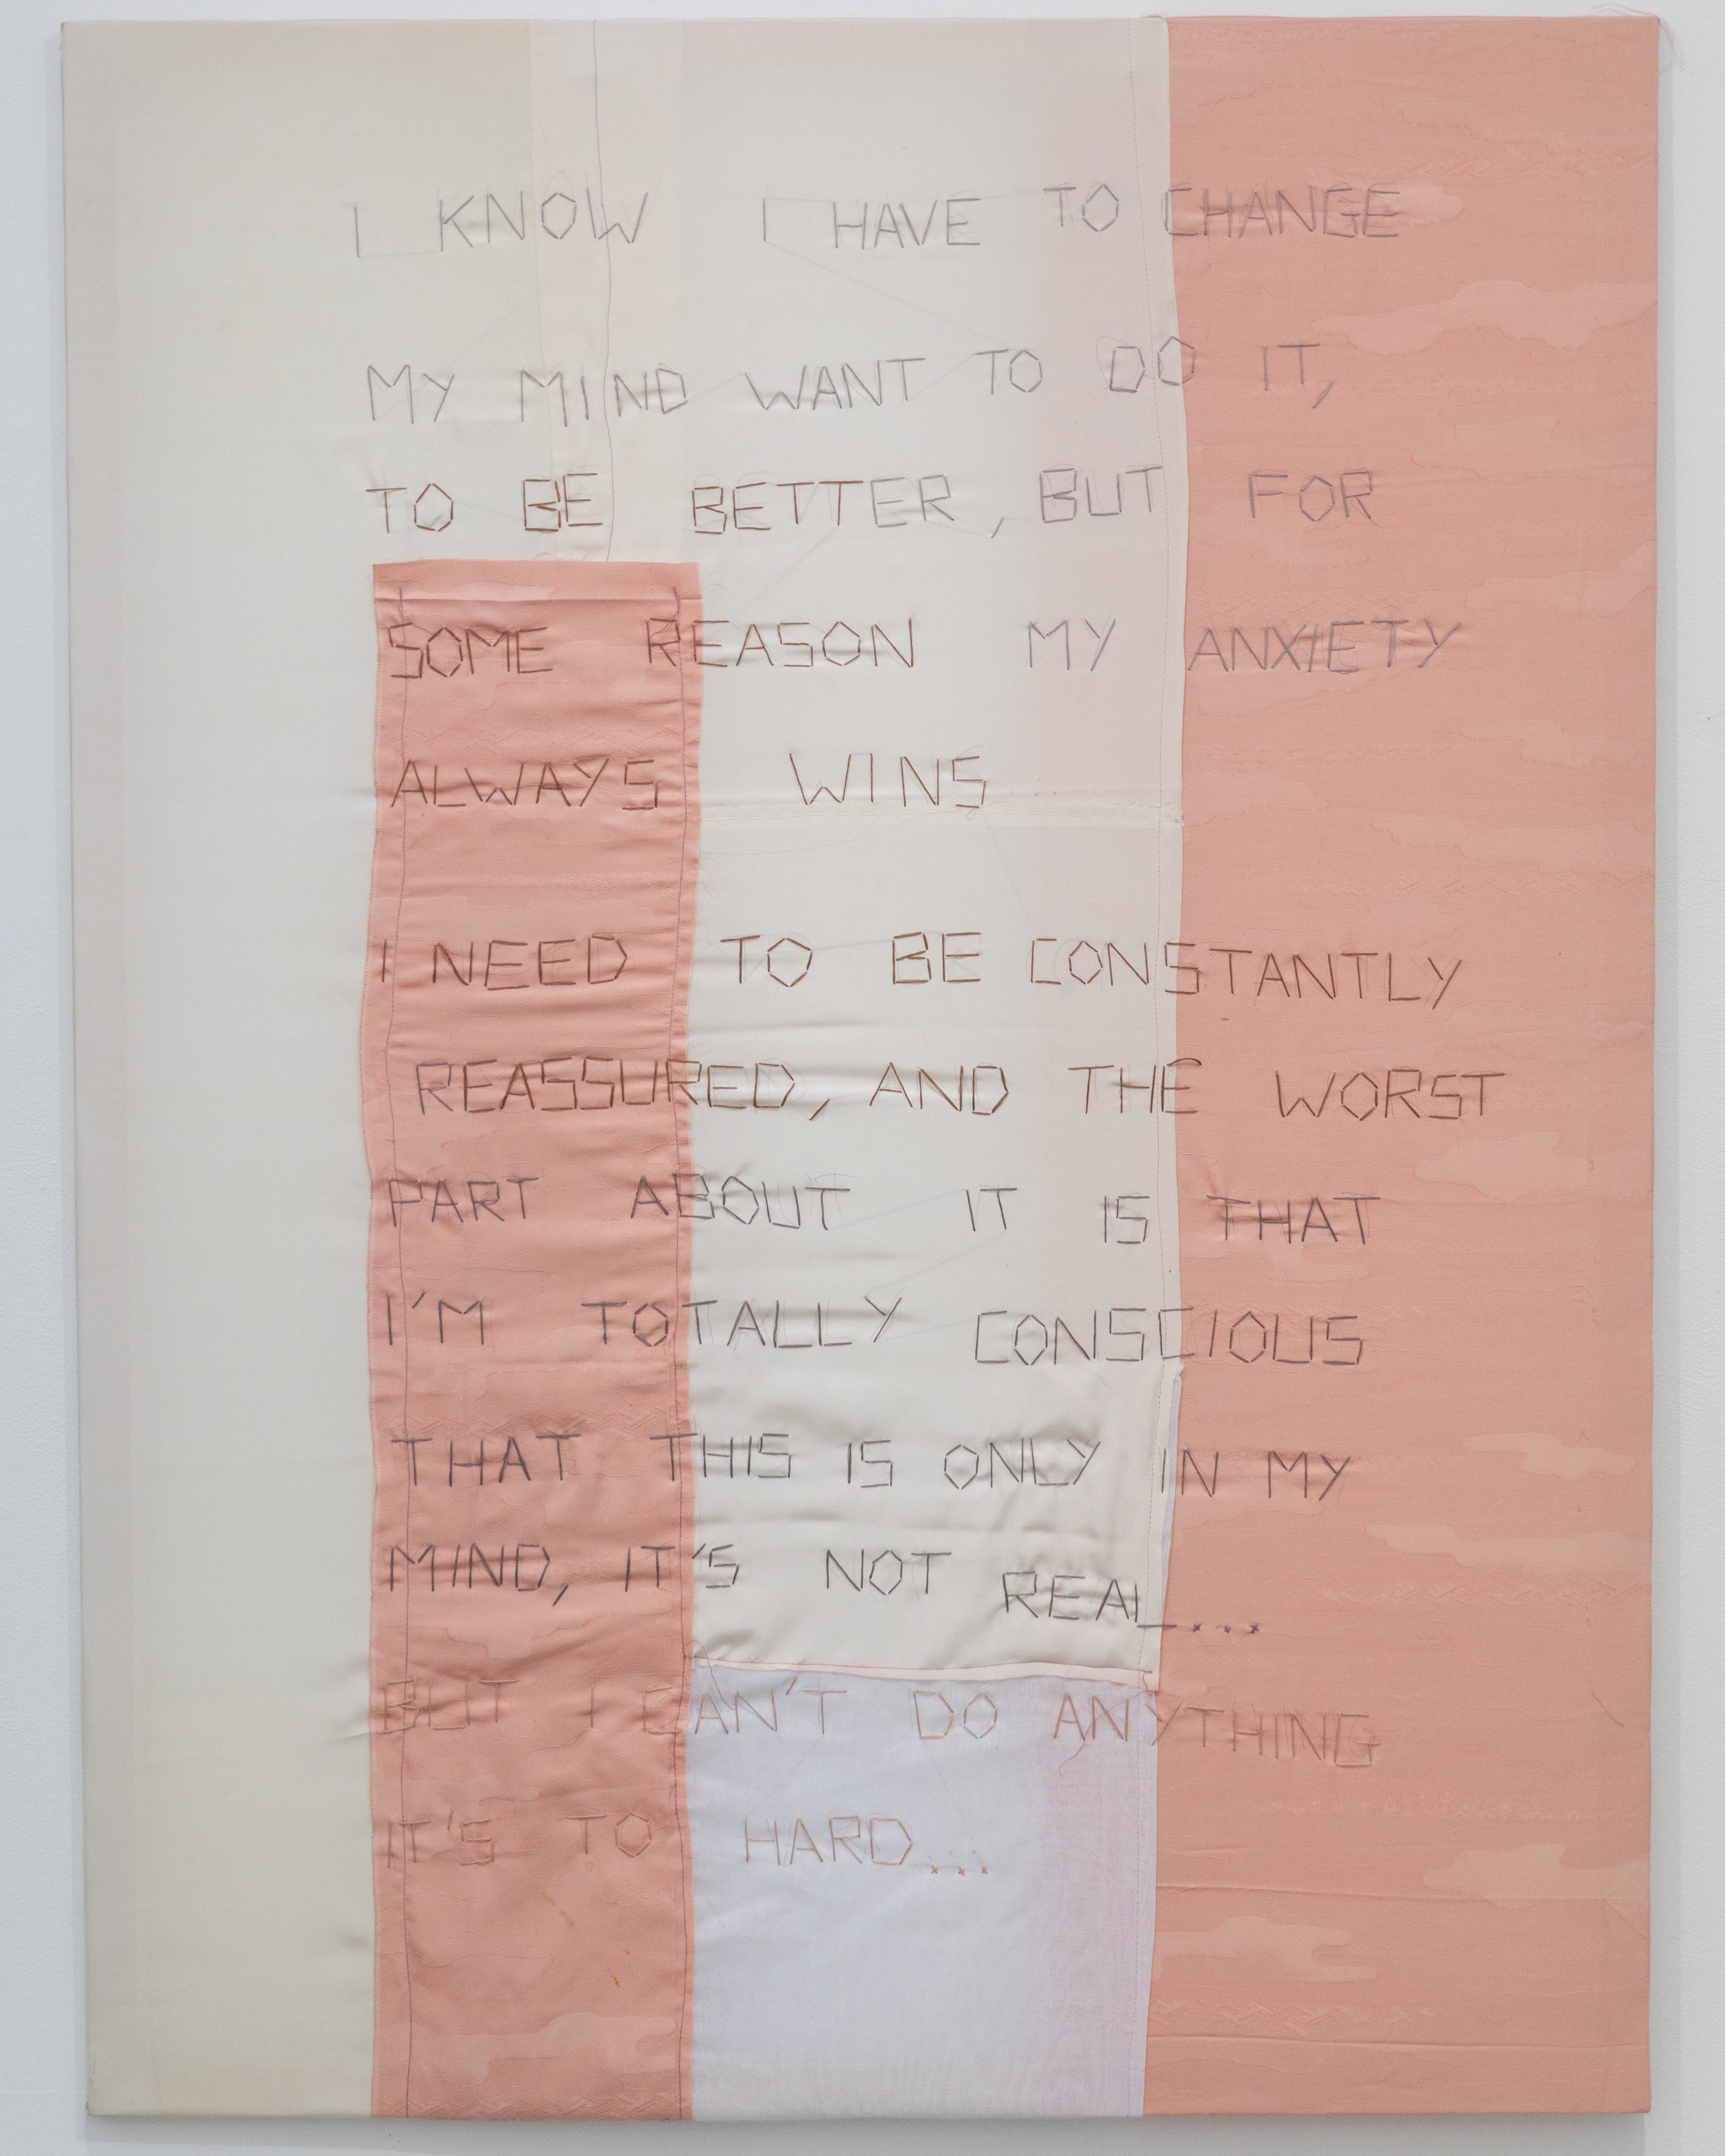 I KNOW I HAVE TO CHANGE
MY MIND WANT TO DO IT,
TO BE BETTER, BUT FOR
SOME REASON MY ANXIETY
ALWAYS WINS
I NEED TO BE CONSTANTLY
REASSURED, AND THE WORST
PART ABOUT IT IS THAT
I'M TOTALLY CONSCIOUS
THAT THIS IS ONLY IN MY
MIND, IT'S NOT REAL...
BUT I CAN'T DO ANYTHING
IT'S TO HARD...